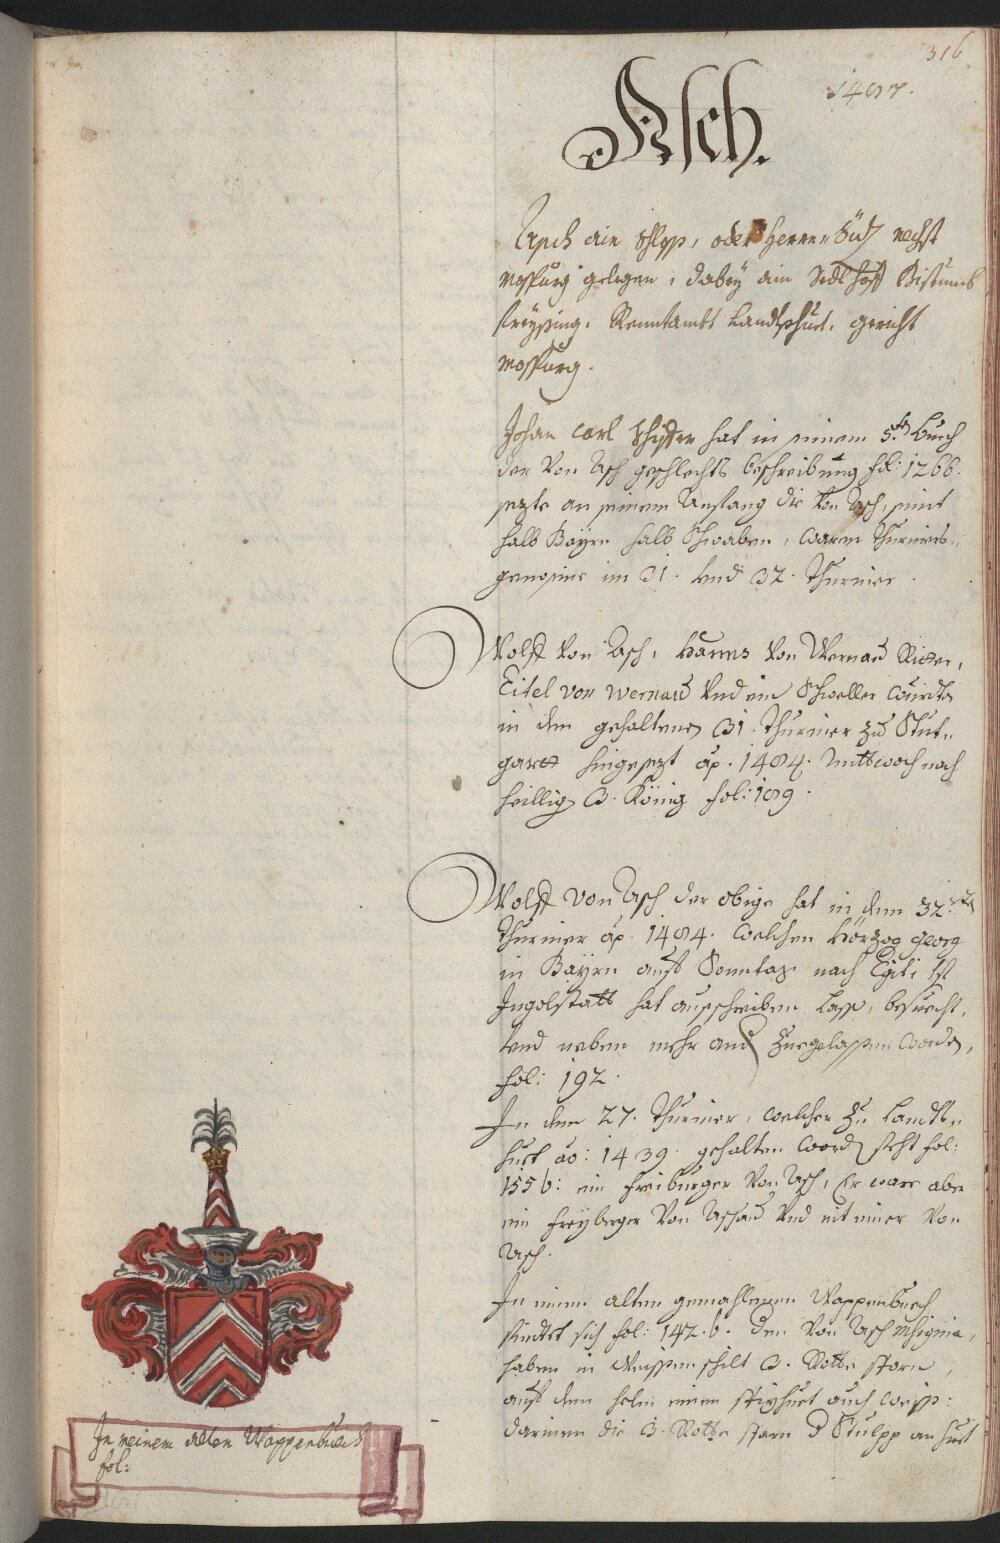 316
1487.
Asch.
Asch ain Schloss, oder Herrn Siz nechst
Mospurg gelegen, dabey ain Sedlhoff Bistumb
freysing. Renntambt Landtshuet. gericht
Mospurg.
Johan Carl hat in seinem 5.t Buech
der Von Asch geschlechts beschreibung fol: 1266.
sezte an seinem Anfang die Von Asch, seint
halb Bayrn halb Schwaben, waren Thurniers-
genossene im 31. Und 32. Thurnier.
Wolff Von Asch, Hanns Von Wernau Ritter,
Eitel von Wernau Und ein Schweller wurdten
in dem gehaltenen 31. Thurnier zu Stut-
gartt hingesezt ao. 1484. mittwoch nach
heillig 3. König fol: 189.
Wolff Von Asch der obige hat in dem 32.ten
Thurnier ao. 1484. welchen Hörzog georg
in Bayrn auf Sonntag nach Egiti
Ingolstatt hat ausschreiben lassen, besuecht,
Und neben mehr and zuegelassen worden,
fol: 192.
In dem 27. Thurnier, welcher zu Landts-
huet ao: 1439. gehalten word steht fol:
155 b: ein freiburger Von Asch, Er ware aber
ein freyberger Von Aschau Und nit einer Von
Asch.
In einem alten gemahlenen Wappenbuech
findtet sich fol: 142. b. den Von Asch Insignia,
haben in Weissen schilt 3. Rotte sparn,
auf dem helm einen spizhuet auch weiss:
darinen die 3. Rotte sparn d Stulpp an huet
In meinem alten Wappenbuech
fol: